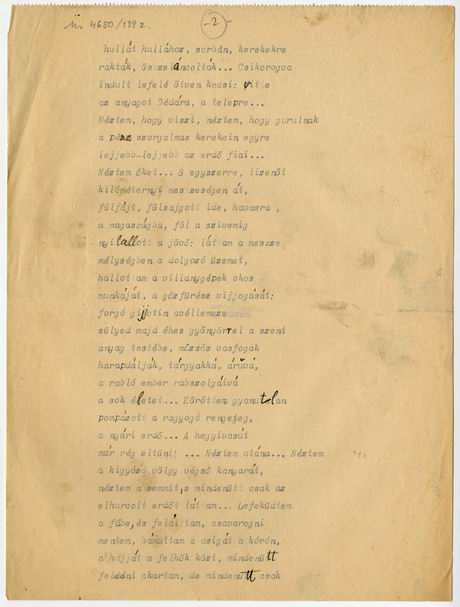 M. 4650/129 2.
-2-
hullát hullához, sorbán, kerekekre
rakták, összeláncolták... Csikorogva
indult lefelé ötven kocsi: vitte
az anyagot Dédára, a telepre...
Néztem, hogy viszi, néztem, hogy gurulnak
a pénz szorgalmas kerekein egyre
lejjebb-lejjebb az erdő fiai...
Néztem őket... S egyszerre, tizenöt
kilóméternyi messzeségen át,
fölfájt, fölsajgott ide, havasra,
a magasságba, föl a szivemig
nyilallott a jövő: láttam a messze
mélységben a dolgozó üzemet,
hallottam a villanygépek okos
munkáját, a gőzfürész vijjogását:
forgó gijjotin acéllemeze
sülyed majd éhes gyönyörrel a szent
anyag testébe, mázsás vasfogak
harapdálják, tárgyakká, áruvá,
a rabló ember rabszolgáivá
a sok életet... Köröttem gyanutlan
pompázott a ragyogó rengeteg,
a nyári erdő... A hegyivasút
már rég eltünt! ... Néztem utána... Néztem
a kigyózó völgy végső kanyarát,
néztem a semmit, s mindenütt csak az
elhurcolt erdőt láttam... Lefeküdtem
a fübe, és felálltam, csavarogni
mentem, bámultam a csigát a kórón,
a héjját a felhők közt, mindenütt
feledni akartam, de mindenütt csak